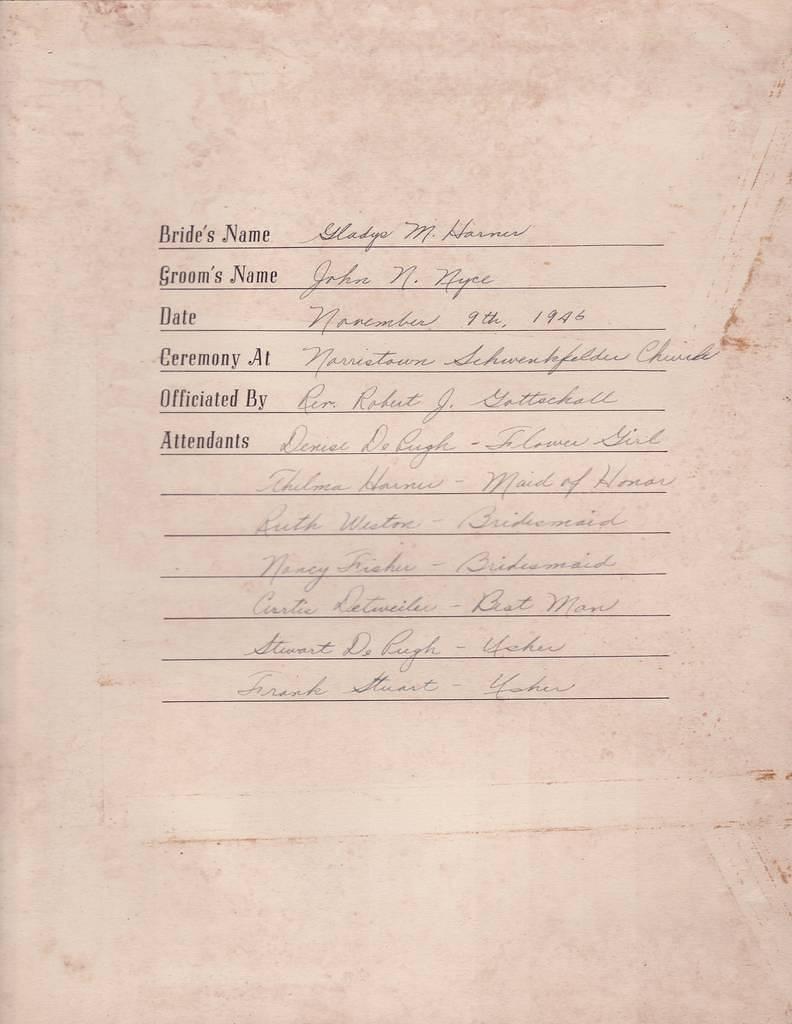 Bride's Name Gladys M. Harner
Groom's Name John N. Nyce
Date November 9th, 1946
Ceremony At Norristown Schwenkfelder Church
Officiated By Rev. Robert J. Gottschall
Attendants Denise De Pugh - Flower Girl
Thelma Harner - Maid of Honor
Ruth Weston - Bridesmaid
Nancy Fisher - Bridesmaid
Curtis Detweiler - Best Man
Stewart De Pugh - Usher
Frank Stuart - Usher